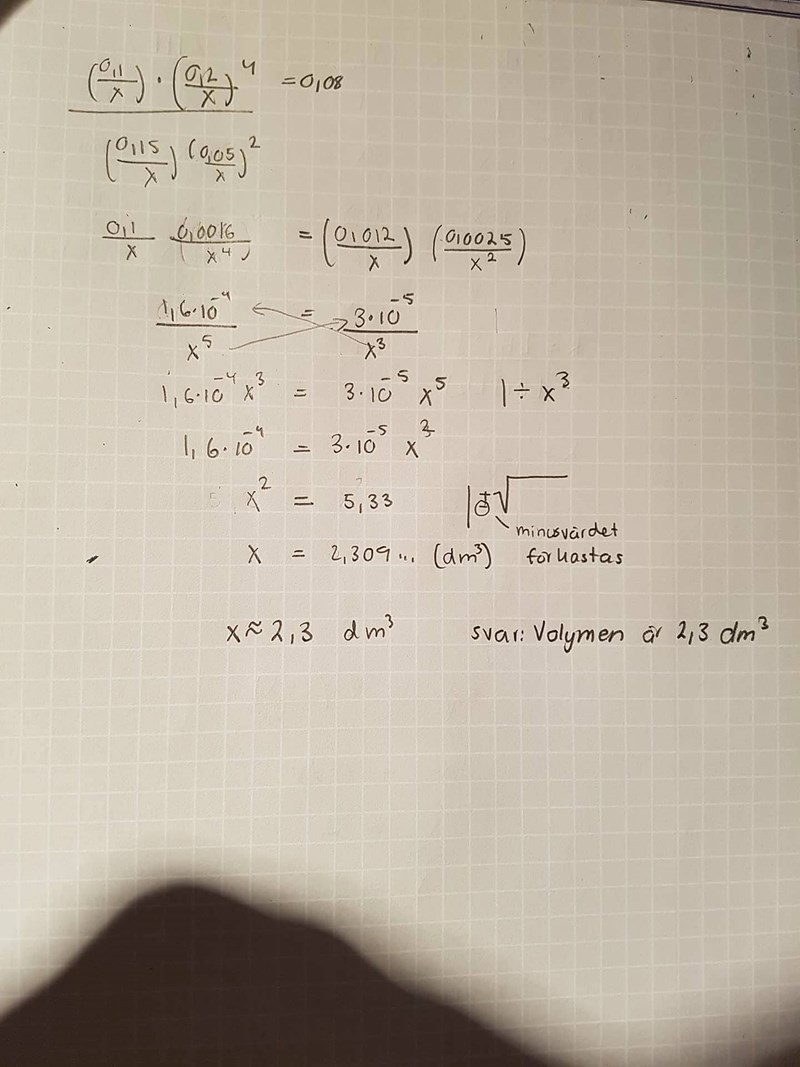 (0,1/x) · (0,2/x)^4 = 0,08
(0,15/x) (0,05/x)^2
0,1/x 0,0016/(x^4) = (0,012/x) (0,0025/x^2)
1,6·10^-4/x^5 = 3·10^-5/x^3
1,6·10^-4 x^3 = 3·10^-5 x^5 | ÷ x^3
1,6·10^-4 = 3·10^-5 x^2
x^2 = 5,33 | ±√
minusvärdet
x = 2,309... (dm^3) förkastas
x ≈ 2,3 dm^3 svar: Volymen är 2,3 dm^3